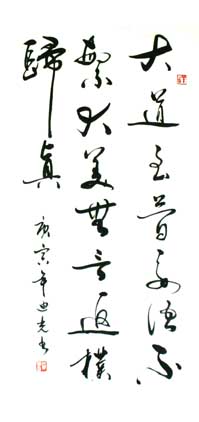 大道至簡要語不
繁大美無言返樸
歸真
庚寅年迪书